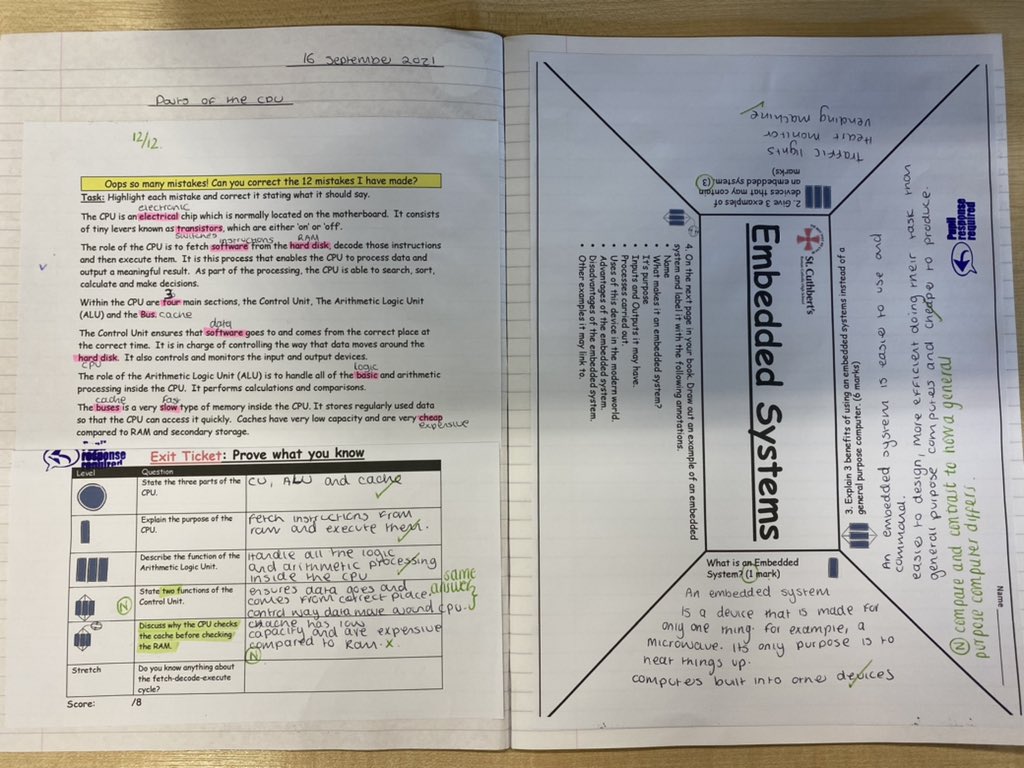 16 September 2021
Parts of the CPU
12/12.
Oops so many mistakes! Can you correct the 12 mistakes I have made?
Task: Highlight each mistake and correct it stating what it should say.
electronic
The CPU is an electrical chip which is normally located on the motherboard. It consists
of tiny levers known as transistors, which are either 'on' or 'off'.
switches
instructions RAM
The role of the CPU is to fetch software from the hard disk, decode those instructions
and then execute them. It is this process that enables the CPU to process data and
output a meaningful result. As part of the processing, the CPU is able to search, sort,
calculate and make decisions.
3
Within the CPU are four main sections, the Control Unit, The Arithmetic Logic Unit
(ALU) and the Bus. cache
data
The Control Unit ensures that software goes to and comes from the correct place at
the correct time. It is in charge of controlling the way that data moves around the
hard disk. It also controls and monitors the input and output devices.
CPU
logic
The role of the Arithmetic Logic Unit (ALU) is to handle all of the basic and arithmetic
processing inside the CPU. It performs calculations and comparisons.
cache fast
The buses is a very slow type of memory inside the CPU. It stores regularly used data
so that the CPU can access it quickly. Caches have very low capacity and are very cheap
expensive
compared to RAM and secondary storage.
response
required
Exit Ticket: Prove what you know
Level Question
State the three parts of the
CPU.
CU, ALU and cache
Explain the purpose of the
CPU.
Fetch instructions from
ram and execute them.
Describe the function of the
Arithmetic Logic Unit.
Handle all the logic
and arithmetic processing
inside the CPU
State two functions of the
Control Unit.
N
ensures data goes and
comes from correct place.
control way data move around CPU.
same
answer
Discuss why the CPU checks
the cache before checking
the RAM.
has low
capacity and are expensive
compared to Ram. x
N
Stretch
Do you know anything about
the fetch-decode-execute
cycle?
Score: /8
Embedded Systems
St. Cuthbert's
What is an Embedded
System? (1 mark)
An embedded system
is a device that is made for
only one thing. for example, a
microwave. Its only purpose is to
heat things up.
computers built into other devices
2. Give 3 examples of
devices that may contain
an embedded system. (3
marks)
Traffic lights
Heart monitor
vending machine
3. Explain 3 benefits of using an embedded systems instead of a
general purpose computer. (6 marks)
An embedded system is easie to use and
command.
easier to design, more efficient doing their task than
general purpose computers and cheaper to produce.
N compare and contrast to how a general
purpose computer differs.
Pupil
response
required
Name
4. On the next page in your book. Draw out an example of an embedded
system and label it with the following annotations.
• Name
• What makes it an embedded system?
• It's purpose
• Inputs and Outputs it may have.
• Processes carried out.
• Uses of this device in the modern world.
• Advantages of the embedded system.
• Disadvantages of the embedded system.
• Other examples it may link to.